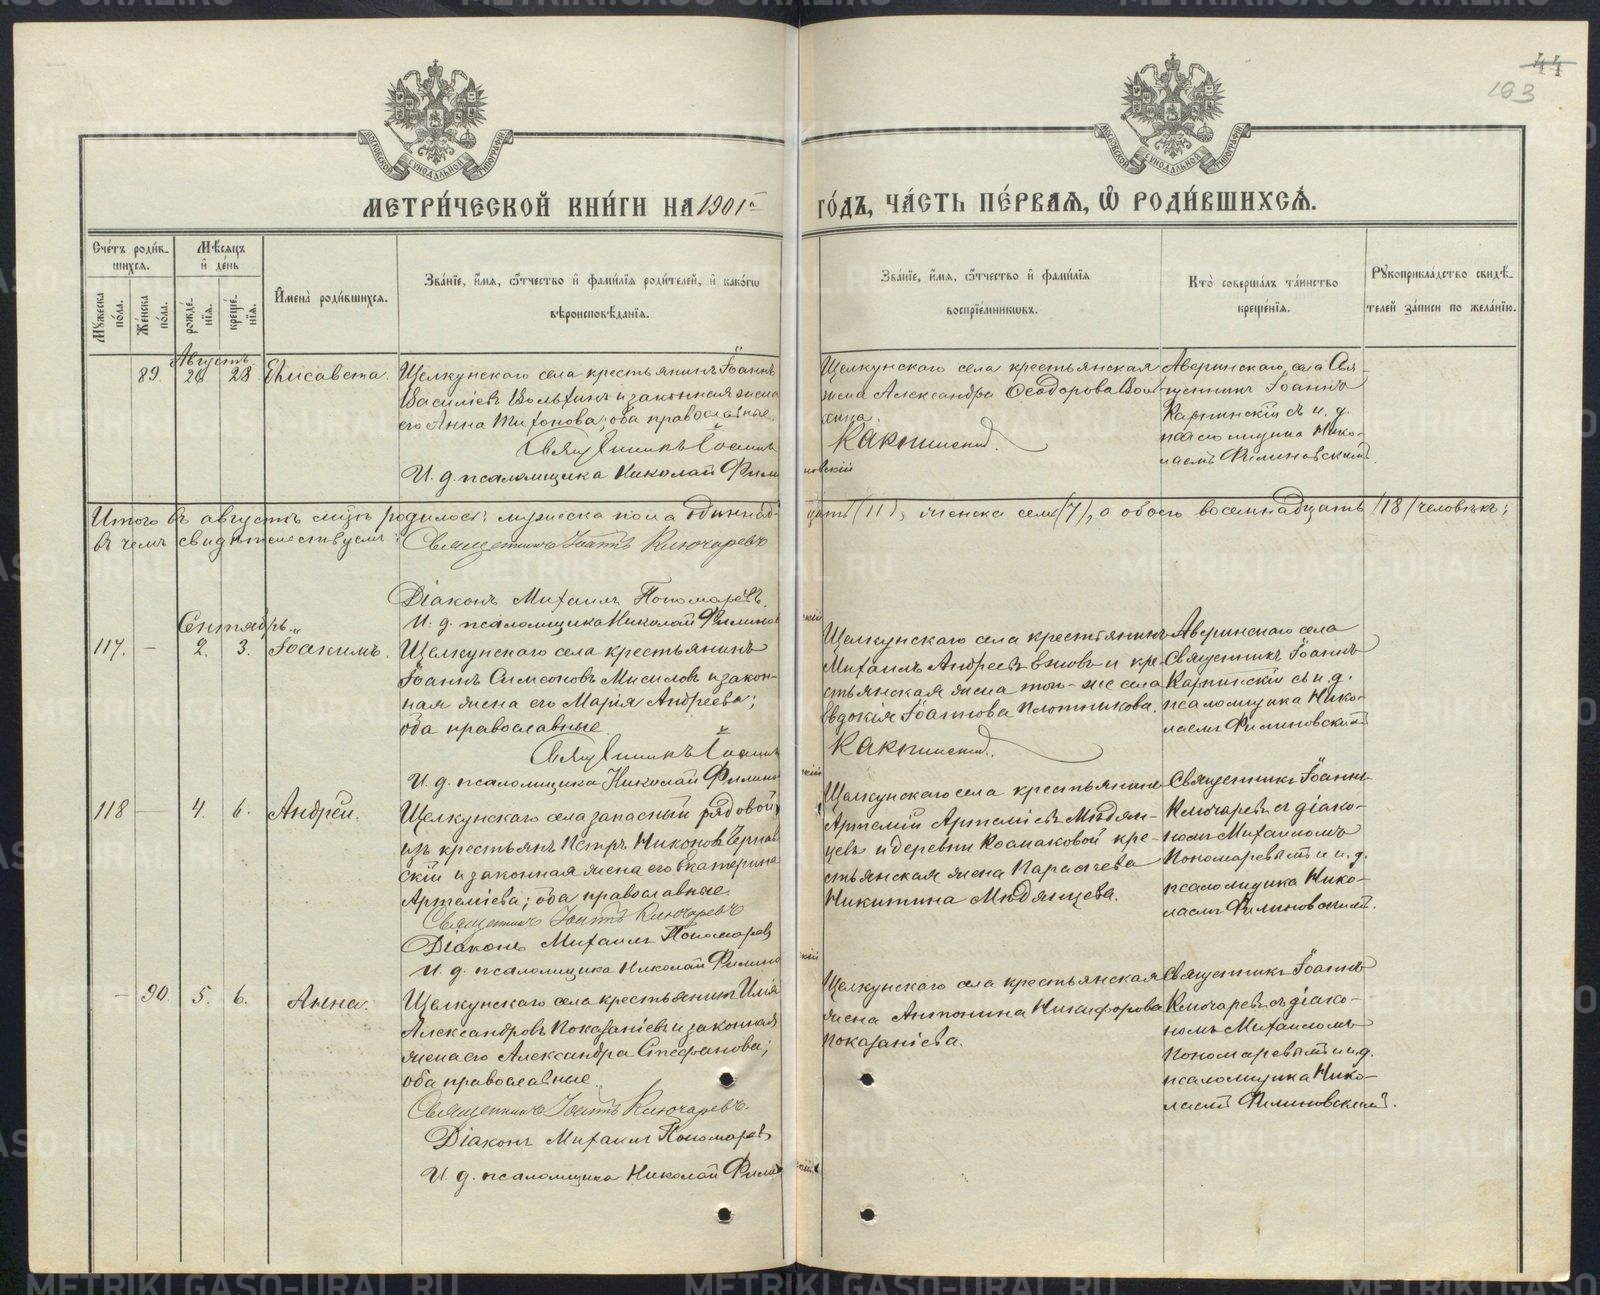 44
163
МЕТРИ́ЧЕСКОЙ КНИ́ГИ НА 1901й ГО́ДЪ, ЧА́СТЬ ПЕ́РВАЯ, Ѡ҆ РОДИ́ВШИХСѦ.
МОСКОВСКОЙ СѴНОДАЛЬНОЙ ТИПОГРАФІИ
МОСКОВСКОЙ СѴНОДАЛЬНОЙ ТИПОГРАФІИ
Сче́тъ роди́вшихсѧ.
Мꙋ́жеска по́ла.
Же́нска по́ла.
Мѣ́сѧцъ и҆ де́нь
рожде́нїѧ.
креще́нїѧ.
И҆мена̀ роди́вшихсѧ.
Зва́нїе, и҆́мѧ, ѻ҆́тчество и҆ фами́лїѧ роди́телей, и҆ како́гѡ
вѣроисповѣ́данїѧ.
Зва́нїе, и҆́мѧ, ѻ҆́тчество и҆ фами́лїѧ
воспрїе́мникѡвъ.
Кто̀ соверша́лъ та́инство
креще́нїѧ.
Рꙋкоприкла́дство свидѣ́-
телей за́писи по жела́нїю.
Августъ
89. 28 Елисавета.
Щелкунскаго села крестьянинъ Іоаннъ
Василіевъ и законная жена
его Анна Тихонова; оба православные.
Священникъ Іоаннъ Карпинскій.
И. д. псаломщика Николай Филиновскій
Щелкунскаго села крестьянская
жена Александра Ѳеодорова
Аверинскаго села Свя-
щенникъ Іоаннъ
Карпинскій съ и. д.
псаломщика Нико-
лаемъ Филиновскимъ.
Итого въ августѣ родилось: мужеска пола одиннад-
цать (11), женска семь (7), а обоего восемнадцать (18) человѣкъ;
въ чемъ свидѣтельствуемъ:
Священникъ Іоаннъ Ключаревъ
Діаконъ Михаилъ Пономаревъ.
И. д. псаломщика Николай Филиновскій
Сентябрь.
117. — 2. 3. Іоакимъ.
Щелкунскаго села крестьянинъ
Іоаннъ Симеоновъ Мисиловъ и закон-
ная жена его Марія Андреева;
оба православные.
Священникъ Іоаннъ Карпинскій.
И. д. псаломщика Николай Филиновскій
Щелкунскаго села крестьянинъ
Михаилъ Андреевъ и кре-
стьянская жена того-же села
Евдокія Іоаннова Плотникова.
Аверинскаго села
Священникъ Іоаннъ
Карпинскій съ и. д.
псаломщика Нико-
лаемъ Филиновскимъ
118 — 4. 6. Андрей.
Щелкунскаго села запасный рядовой
изъ крестьянъ Петръ Никоновъ Чернав-
скій и законная жена его Екатерина
Артеміева; оба православные.
Священникъ Іоаннъ Ключаревъ
Діаконъ Михаилъ Пономаревъ
И. д. псаломщика Николай Филиновскій
Щелкунскаго села крестьянинъ
Артемій Артеміевъ Мѣдян-
цевъ и деревни Космаковой кре-
стьянская жена Параскева
Никитина Мѣдянцева.
Священникъ Іоаннъ
Ключаревъ съ діако-
номъ Михаиломъ
Пономаревымъ и и. д.
псаломщика Нико-
лаемъ Филиновскимъ.
— 90. 5. 6. Анна.
Щелкунскаго села крестьянинъ Илія
Александровъ Показаніевъ и законная
жена его Александра Стефанова;
оба православные.
Священникъ Іоаннъ Ключаревъ.
Діаконъ Михаилъ Пономаревъ
И. д. псаломщика Николай Филиновскій
Щелкунскаго села крестьянская
жена Антонина Никифорова
Показаніева.
Священникъ Іоаннъ
Ключаревъ съ діако-
номъ Михаиломъ
Пономаревымъ и и. д.
псаломщика Нико-
лаемъ Филиновскимъ.
METRIKI.GASO-URAL.RU